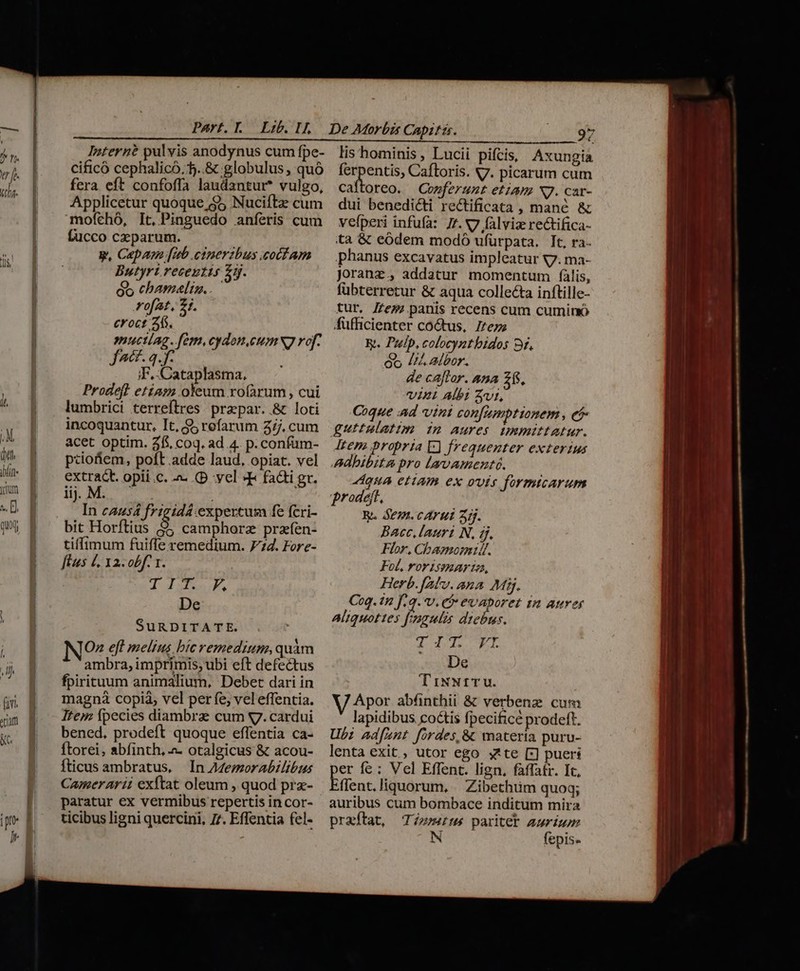 Part. I. Lib. II.
Internè pulvis anodynus cum ſpe-
cificô cephalicô ♄. & globulus, quô
fera eſt confoſſa laudantur vulgo,
Applicetur quoque Nuciſtæ cum
moſchô, It. Pinguedo anſeris cum
ſucco cæparum.
℞. Cepam ſub cineribus coctam
Butyri recentis ʒij.
chamælin.
roſat. ʒi.
croci ʒß.
mucilag. ſem. cydon. cum ▽ roſ.
fact. q. ſ.
F. Cataplasma.
Prodeſt etiam oleum roſarum, cui
lumbrici terreſtres præpar. & loti
incoquantur, It. roſarum ʒij. cum
acet optim. ʒß, coq. ad 4. p. conſum-
ptionem, poſt adde laud. opiat. vel
extract. opii c. vel facti gr.
iij. M.
In causâ frigidâ expertum ſe ſcri-
bit Horſtius camphoræ præſen-
tiſſimum fuiſſe remedium. Vid. Fore-
ſtus l. 12. obſ. 1.
TIT. V.
De
SURDITATE.
NOn eſt melius hic remedium, quàm
ambra, imprimis, ubi eſt defectus
ſpirituum animalium. Debet dari in
magnâ copiâ, vel per ſe, vel eſſentia.
Item ſpecies diambræ cum ▽. cardui
bened. prodeſt quoque eſſentia ca-
ſtorei, abſinth. otalgicus & acou-
ſticus ambratus. In Memorabilibus
Camerarii exſtat oleum, quod præ-
paratur ex vermibus repertis in cor-
ticibus ligni quercini, It. Eſſentia fel-
De Morbis Capitis. 97
lis hominis, Lucii piſcis, Axungia
ſerpentis, Caſtoris. ▽. picarum cum
caſtoreo. Conferunt etiam ▽. car-
dui benedicti rectificata, manè &
veſperi infuſa: It. ▽ ſalviæ rectifica-
ta & eôdem modô uſurpata. It. ra-
phanus excavatus impleatur ▽. ma-
joranæ, addatur momentum ſalis,
ſubterretur & aqua collecta inſtille-
tur. Item panis recens cum cuminô
ſufficienter coctus, Item
℞. Pulp. colocynthidos ℈i,
lil. albor.
de caſtor. ana ʒß,
vini albi ʒvi,
Coque ad vini conſumptionem, &
guttulatim in aures immittatur.
Item propria frequenter exterius
adhibita pro lavamentô.
Aqua etiam ex ovis formicarum
prodeſt.
℞. Sem. carui ʒij.
Bacc. lauri N. ij.
Flor. Chamomill.
Fol. rorismarin.
Herb. ſalv. ana Mij.
Coq. in ſ. q. v. & evaporet in aures
aliquoties ſingulis diebus.
TIT. VI.
De
TINNITU.
VApor abſinthii & verbenæ cum
lapidibus coctis ſpecificè prodeſt.
Ubi adſunt ſordes, & materia puru-
lenta exit, utor ego te pueri
per ſe: Vel Eſſent. lign. ſaſſafr. It.
Eſſent. liquorum. Zibethum quoq;
auribus cum bombace inditum mira
præſtat, Tinnitus pariter aurium
N ſepis-